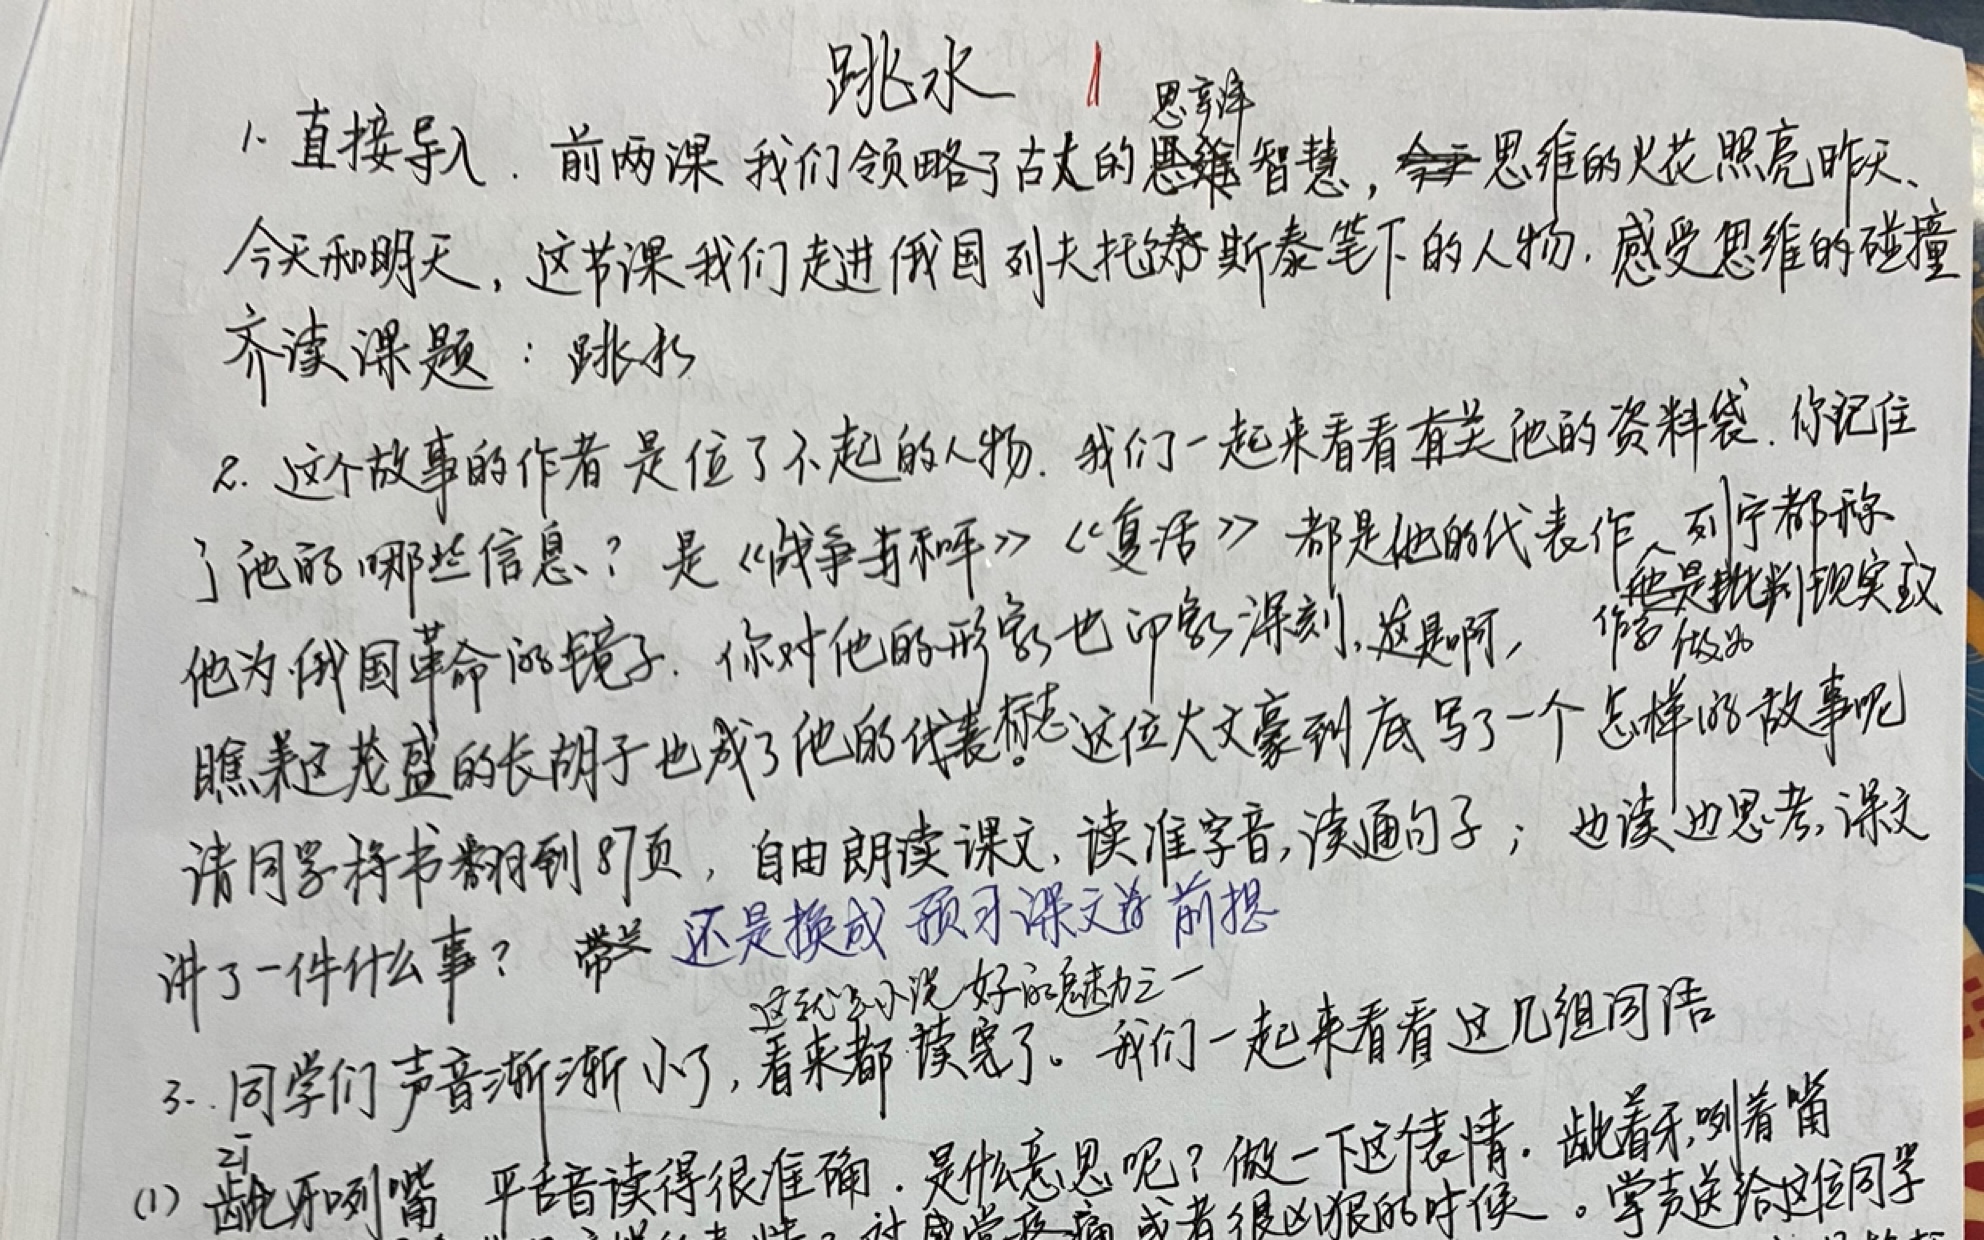 跳水
思辨
1. 直接导入. 前两课 我们领略了古人的思维智慧, 今天思维的火花照亮昨天、
今天和明天, 这节课我们走进俄国列夫托尔斯泰笔下的人物. 感受思维的碰撞
齐读课题 : 跳水
2. 这个故事的作者是位了不起的人物. 我们一起来看看有关他的资料袋. 你记住
了他的哪些信息? 是《战争与和平》《复活》都是他的代表作、列宁都称
他是批判现实主义
作家 做为
他为俄国革命的镜子. 你对他的形象也印象深刻, 是啊,
瞧这茂盛的长胡子也成了他的代表标志。这位大文豪到底写了一个怎样的故事呢
请同学将书翻到87页, 自由朗读课文, 读准字音, 读通句子; 边读边思考, 课文
讲了一件什么事? 还是换成预习课文 前提
这就是小说 好的魅力之一
3. 同学们声音渐渐小了, 看来都读完了。我们一起来看看这几组词语
zī
(1) 龇牙咧嘴 平舌音读得很准确. 是什么意思呢? 做一下这个表情. 龇着牙, 咧着嘴
感觉疼痛或者很凶狠的时候。掌声送给这位同学